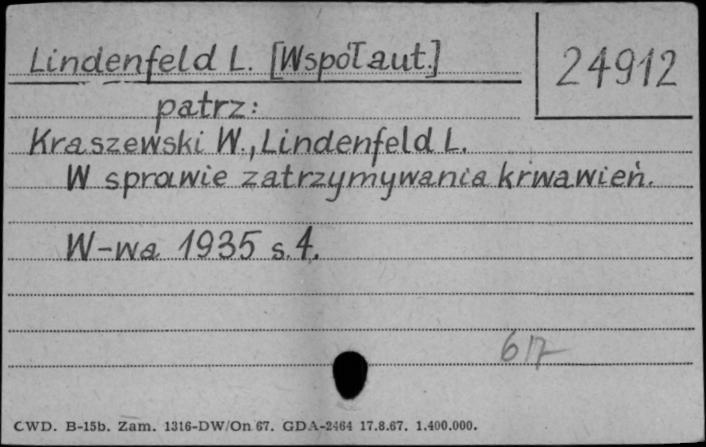 Lindenfeld L. [Współaut.]
24912
patrz:
Kraszewski W., Lindenfeld L.
W sprawie zatrzymywania krwawień.
W-wa 1935 s. 4.
617
CWD. B-15b. Zam. 1316-DW/On 67. GDA-2464 17.8.67. 1.400.000.